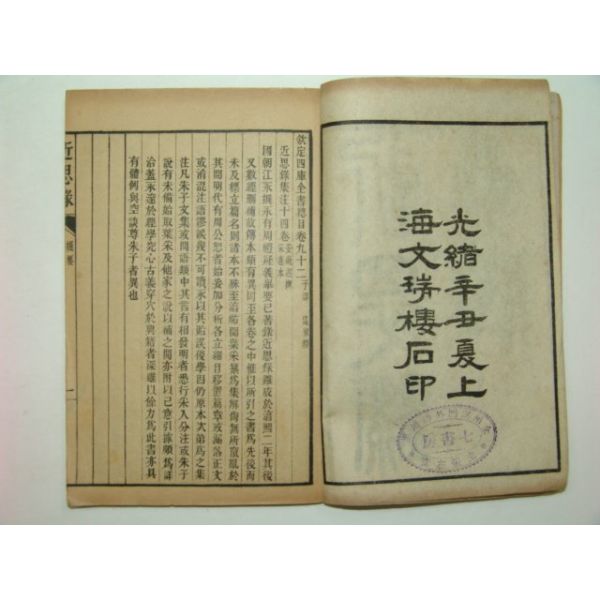 光緒辛丑夏上
海文瑞樓石印
七書房
欽定四庫全書總目卷九十二子部
近思錄集注十四卷
國朝江永撰永有周禮疑義舉要已著錄近思錄雖成於淳熙二年其後
又數經刪補故傳本頗有異同至各卷之中惟以所引之書為先後而
未及標立篇名則諸本不殊至淳祐間葉采纂為集解尚無所竄亂於
其間明代有周公恕者始妄加分析各立細目移置篇章或漏落正文
或淆混注語謬誤幾不可讀永以其貽誤後學因仍原本次第為之集
注凡朱子文集或問語類中其言有相發明者悉行采入分注或朱子
說有未備始取葉采及他家之說以補之間亦附以己意引據頗為詳
洽蓋永邃於經學究心古義穿穴於典籍者深雖以餘力為此書亦具
有體例與空談尊朱子者異也
近思錄